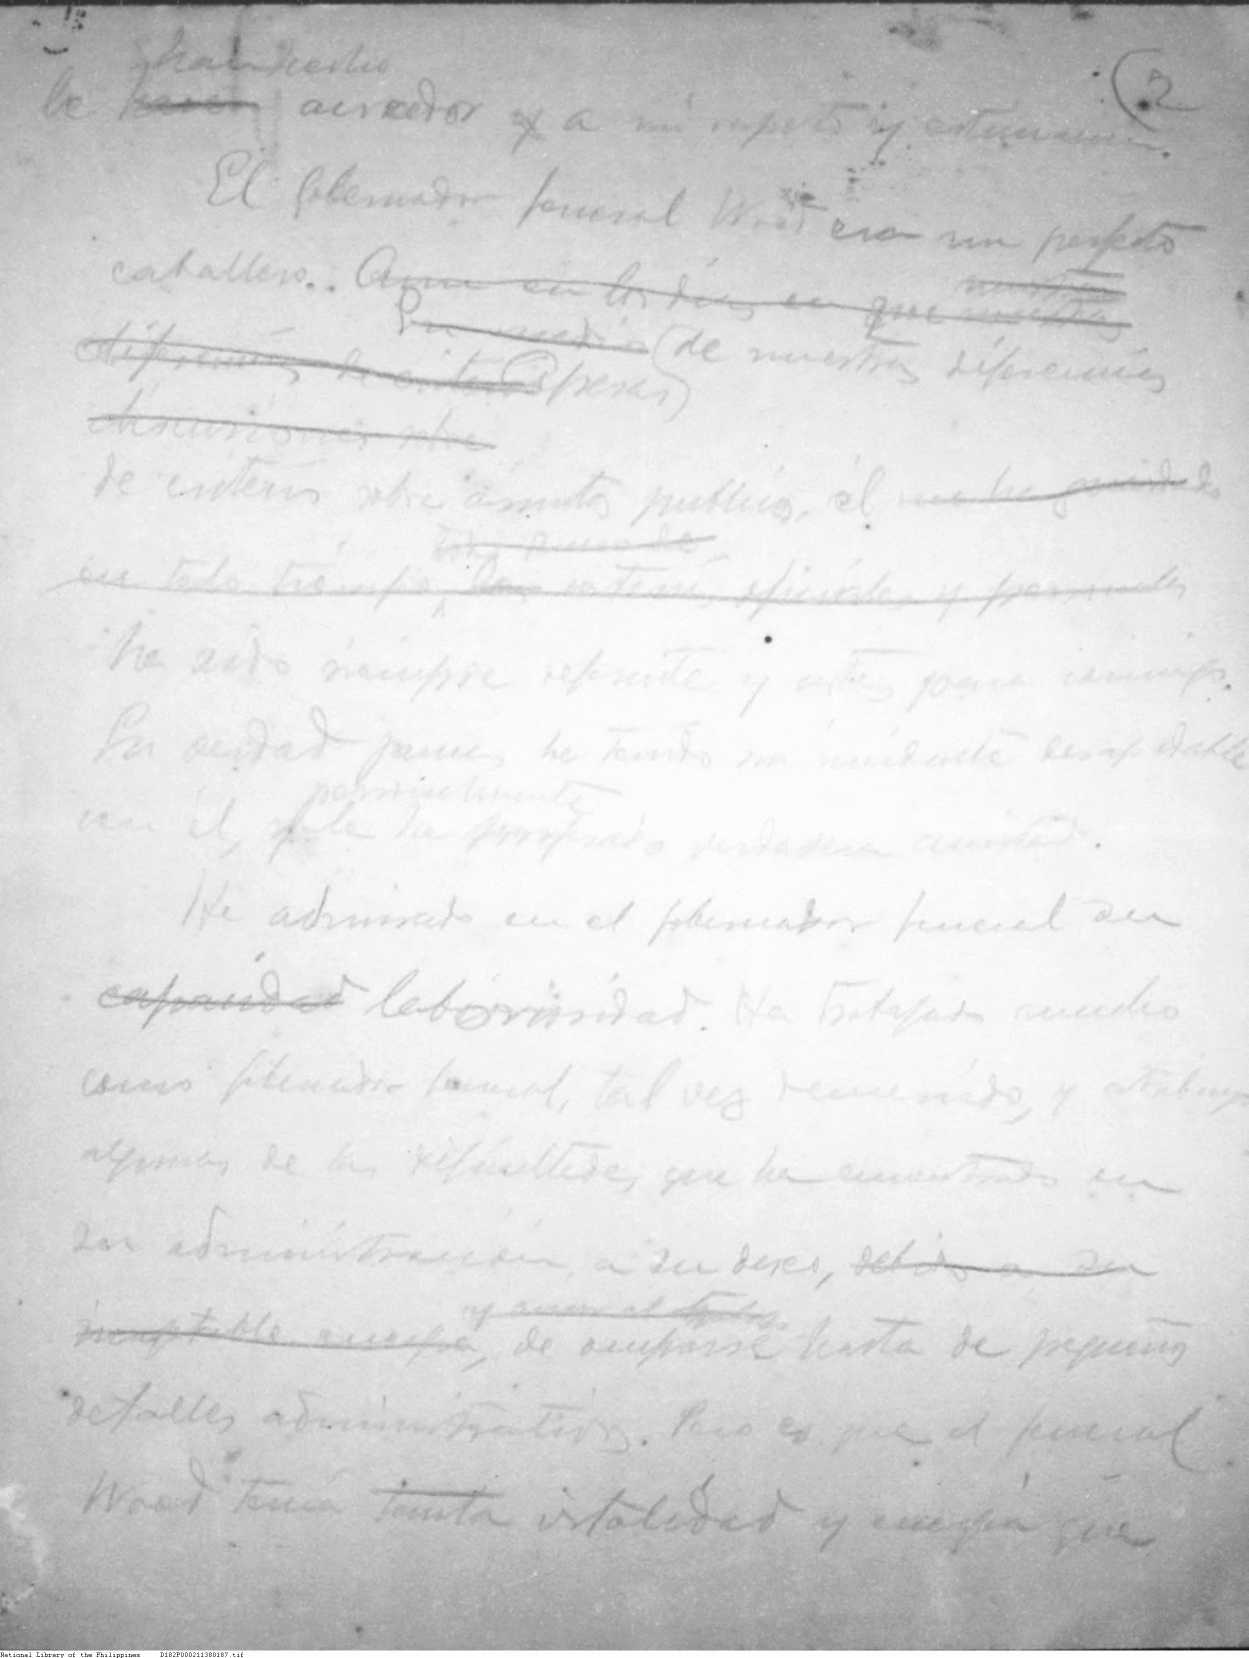 han hecho
le hacen acreedor a mi respeto y estimacion.
2
El Gobernador General Wood era un perfecto
caballero. Aun en los dias en que nuestras
En medio (de nuestras diferencias
diferencias de criterio (A pesar)
discusiones sobre
de criterio sobre asuntos publicos, él me ha guardado
en todo tiempo, oficiales y personales
ha sido siempre y cortés para conmigo.
En verdad jamas he tenido un incidente desagradable
personalmente
con él, y le he profesado verdadera amistad.
He admirado en el gobernador general su
capacidad laboriosidad. Ha trabajado mucho
como gobernador general, tal vez demasiado, y atribuyo
algunas de las dificultades que ha encontrado en
su administración a su deseo, debido a su
inagotable energía, de ocuparse hasta de pequeños
detalles administrativos. Pero es que el general
Wood tenía tanta vitalidad y energía que